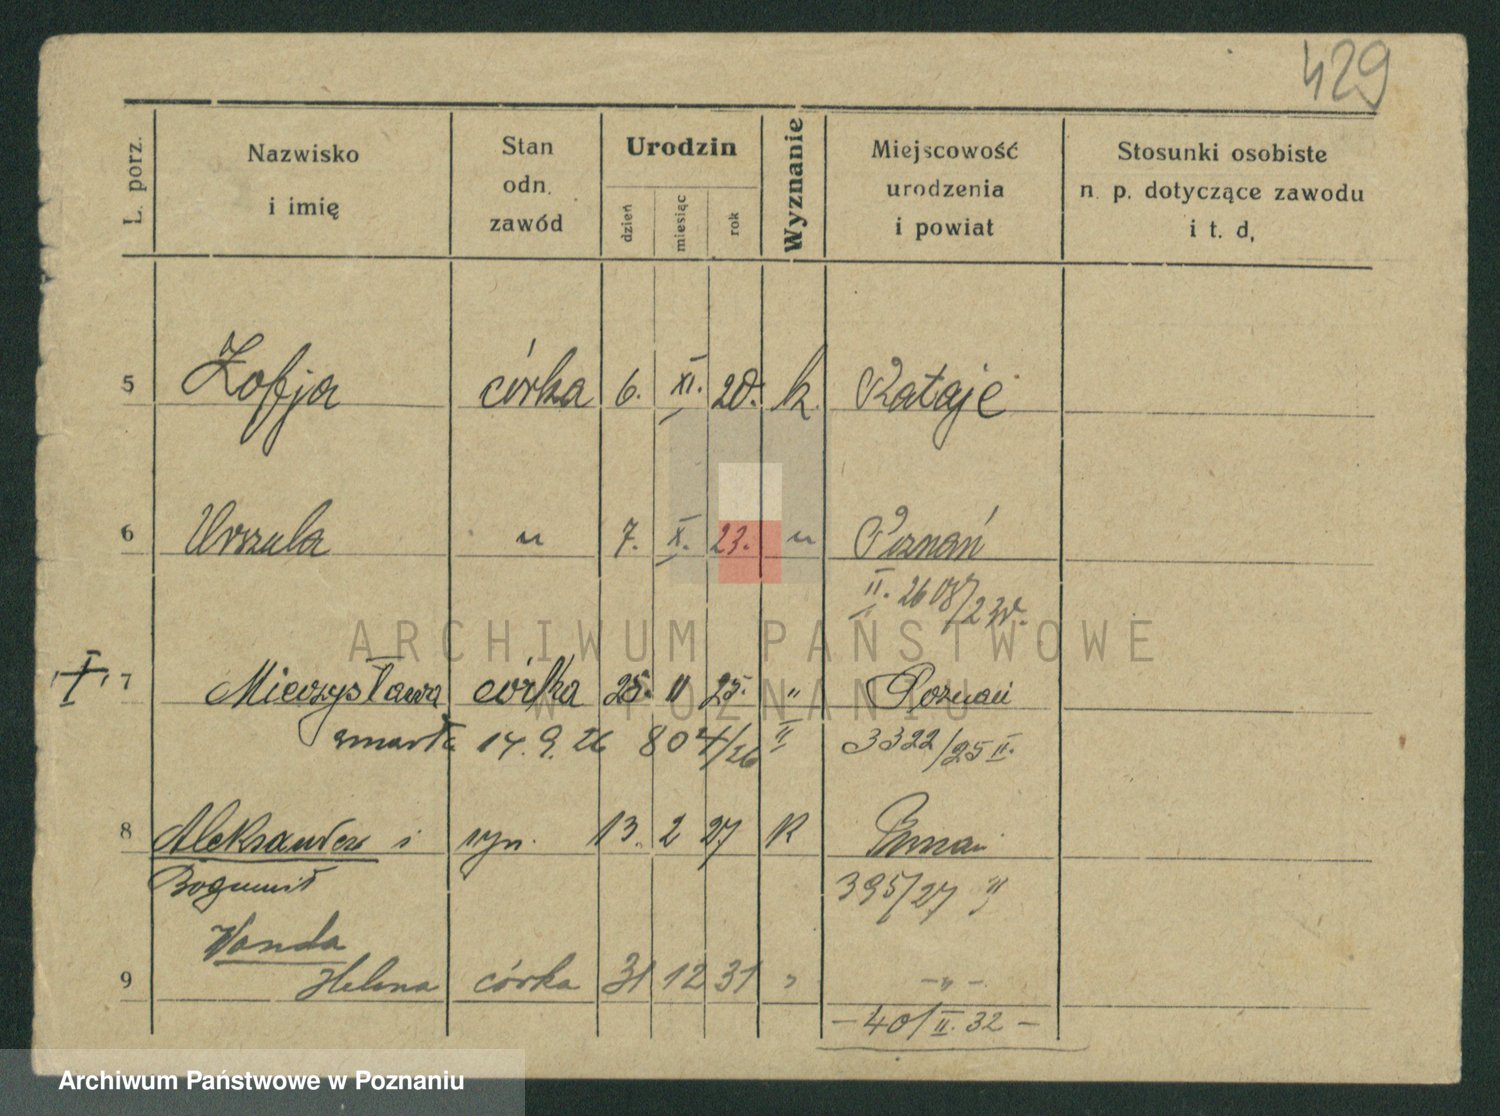 429
L. porz.
Nazwisko
i imię
Stan
odn.
zawód
Urodzin
dzień
miesiąc
rok
Wyznanie
Miejscowość
urodzenia
i powiat
Stosunki osobiste
n. p. dotyczące zawodu
i t. d,
5 Zofja córka 6. XI. 20. k. Rataje
6 Urszula " 7. X. 23. " Poznań
II. 2608/23
7 Mieczysława córka 25. II 25. " Poznań
zmarła 14. 9. 26 804/26 II 3322/25 II.
8 Aleksander i syn. 13. 2 27 K
Bogumił 395/27 II
Wanda
9 Helena córka 31 12 31 " - " -
- 40/II. 32 -
ARCHIWUM PAŃSTWOWE
W POZNANIU
Archiwum Państwowe w Poznaniu